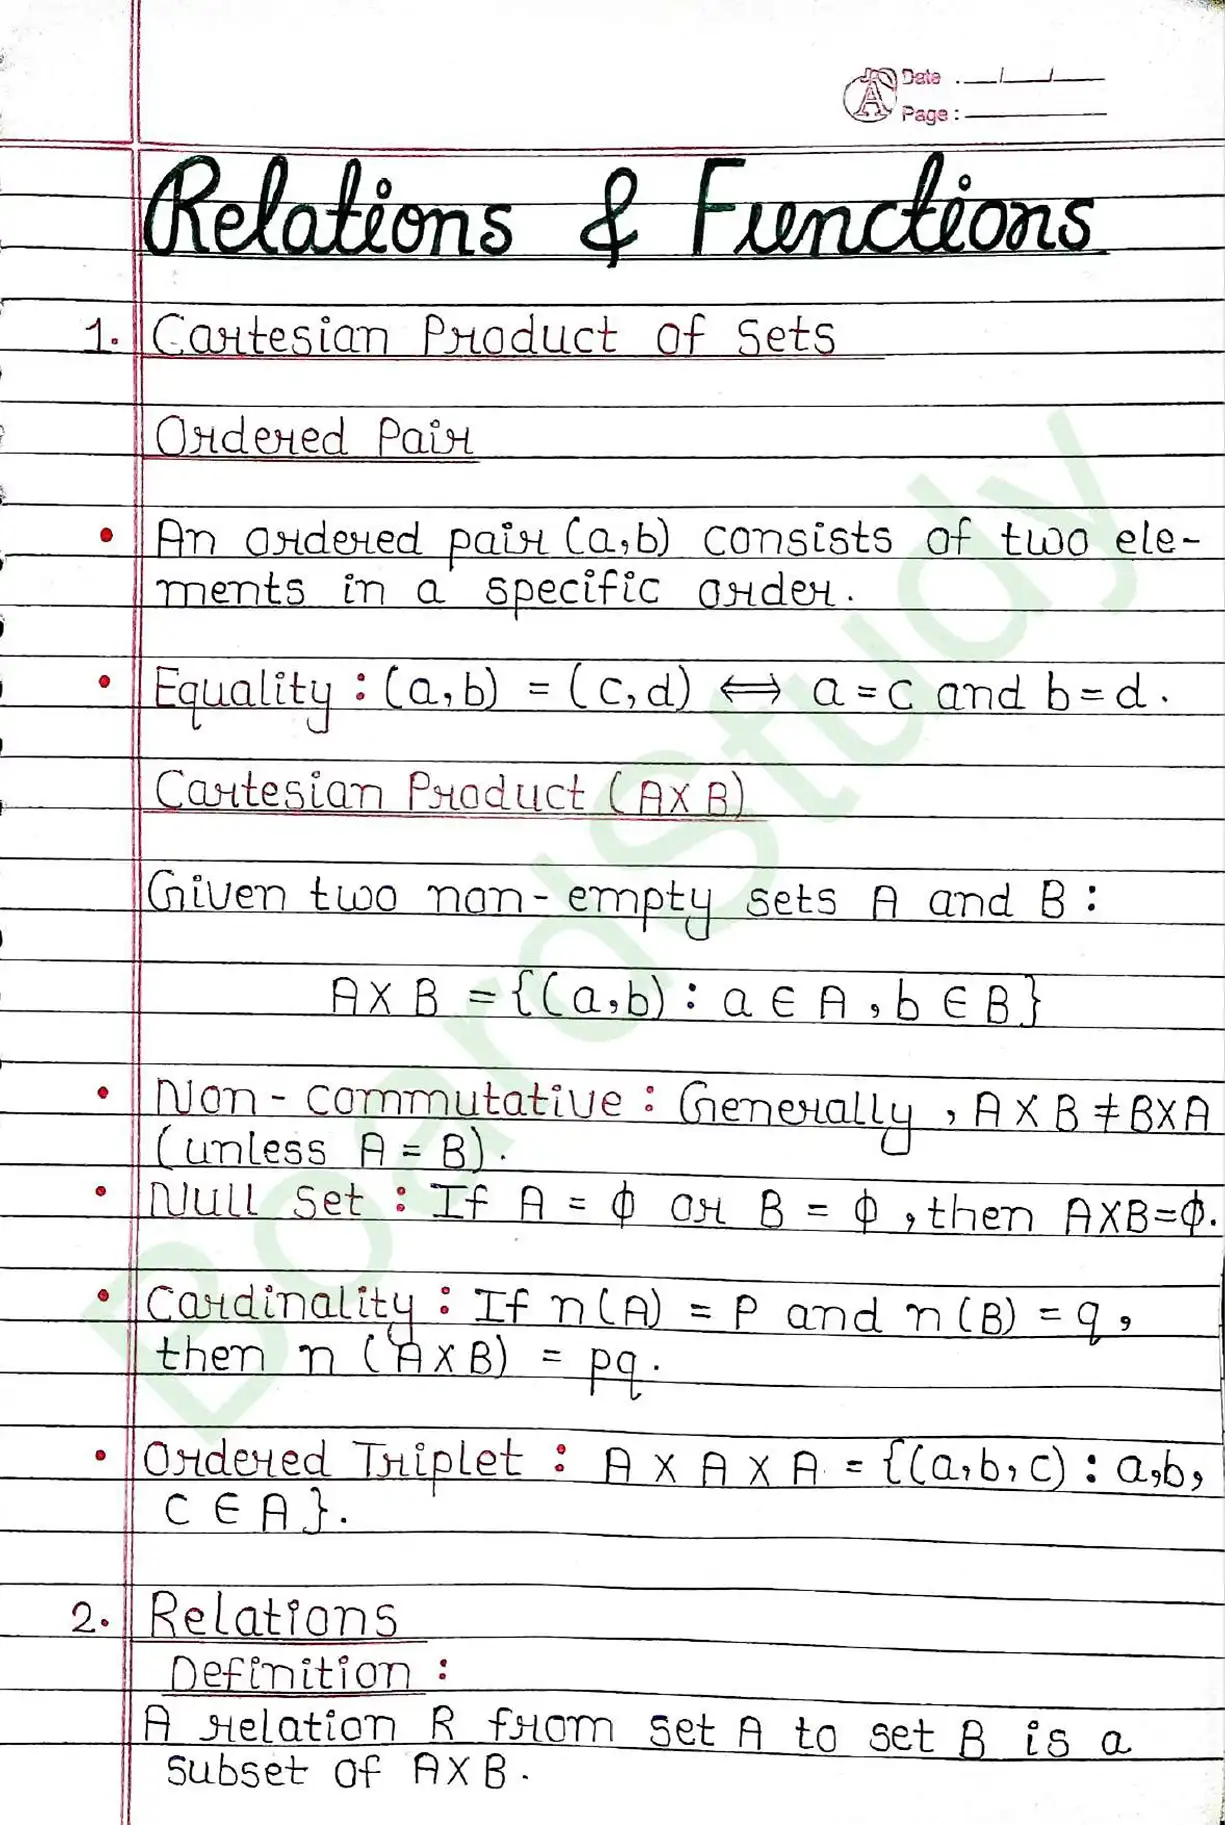 Date . __/__/__
Page : ______
Relations & Functions
1. Cartesian Product of Sets
Ordered Pair
• An ordered pair (a,b) consists of two ele-
ments in a specific order.
• Equality : (a,b) = (c,d) ⟺ a = c and b = d.
Cartesian Product (A×B)
Given two non-empty sets A and B :
A × B = {(a,b) : a ∈ A , b ∈ B}
• Non-commutative : Generally , A × B ≠ B×A
(unless A = B).
• Null set : If A = ϕ or B = ϕ , then A×B=ϕ.
• Cardinality : If n(A) = p and n(B) = q ,
then n (A×B) = pq.
• Ordered Triplet : A × A × A = {(a,b,c) : a,b,
c ∈ A}.
2. Relations
Definition :
A relation R from set A to set B is a
subset of A×B.
BoardStudy